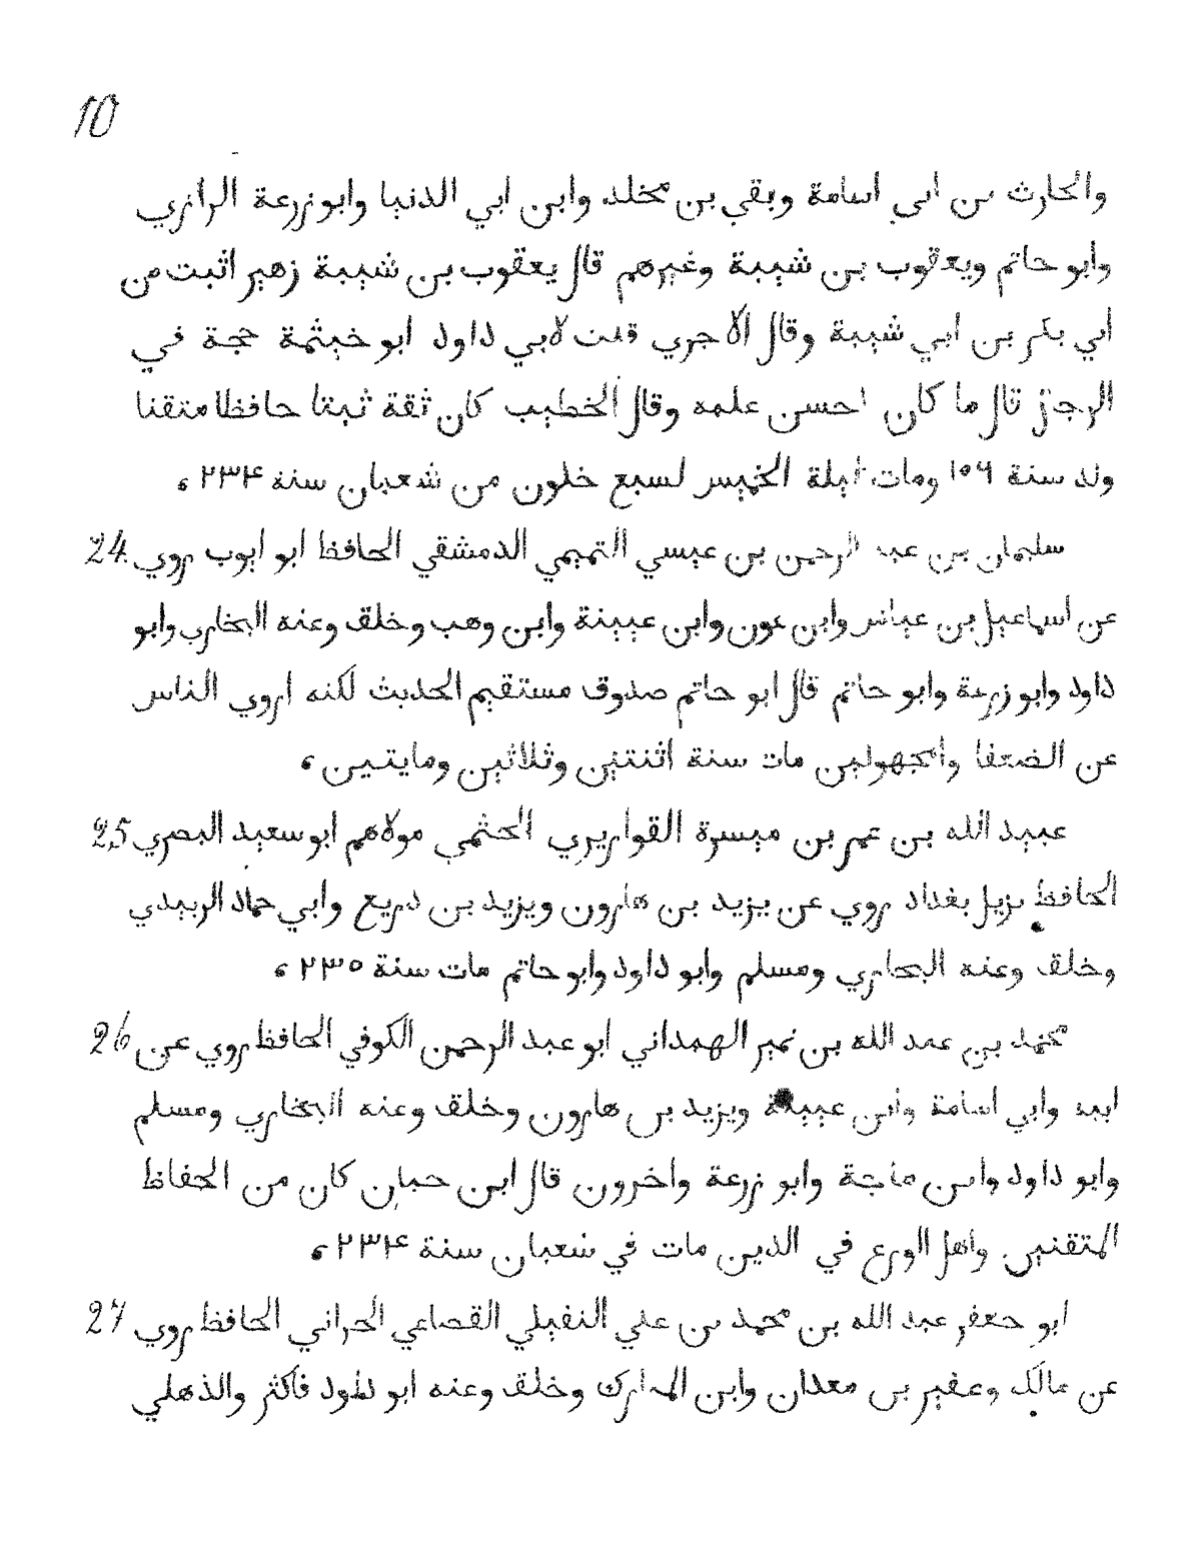 10
والحارث بن ابي اسامة وبقي بن مخلد وابن ابي الدنيا وابو زرعة الرازي
وابو حاتم ويعقوب بن شيبة وغيرهم قال يعقوب بن شيبة زهير اثبت من
ابي بكر بن ابي شيبة وقال الاجري قلت لابي داود ابو خيثمة حجة في
الرجال قال ما كان احسن علمه وقال الخطيب كان ثقة ثبتا حافظا متقنا
ولد سنة ١٥٦ ومات ليلة الخميس لسبع خلون من شعبان سنة ٢٣٤ ،
سليمان بن عبد الرحمن بن عيسي التميمي الدمشقي الحافظ ابو ايوب روي 24.
عن اسماعيل بن عياش وابن عون وابن عيينة وابن وهب وخلق وعنه البخاري وابو
داود وابو زرعة وابو حاتم قال ابو حاتم صدوق مستقيم الحديث لكنه اروي الناس
عن الضعفا والمجهولين مات سنة اثنتين وثلاثين ومايتين ،
عبيد الله بن عمر بن ميسرة القواريري الحثمي مولاهم ابو سعيد البصري 25
الحافظ نزيل بغداد روي عن يزيد بن هارون ويزيد بن دريع وابي حماد الزبيدي
وخلق وعنه البخاري ومسلم وابو داود وابو حاتم مات سنة ٢٣٥ ،
محمد بن عبد الله بن نمير الهمداني ابو عبد الرحمن الكوفي الحافظ روي عن 26
ابيه وابي اسامة وابن عيينة ويزيد بن هارون وخلق وعنه البخاري ومسلم
وابو داود وابن ماجة وابو زرعة واخرون قال ابن حبان كان من الحفاظ
المتقنين واهل الورع في الدين مات في شعبان سنة ٢٣٤ ،
ابو جعفر عبد الله بن محمد بن علي النفيلي القصاعي الحراني الحافظ روي 27
عن مالك وعفير بن معدان وابن المبارك وخلق وعنه ابو داود فاكثر والذهلي